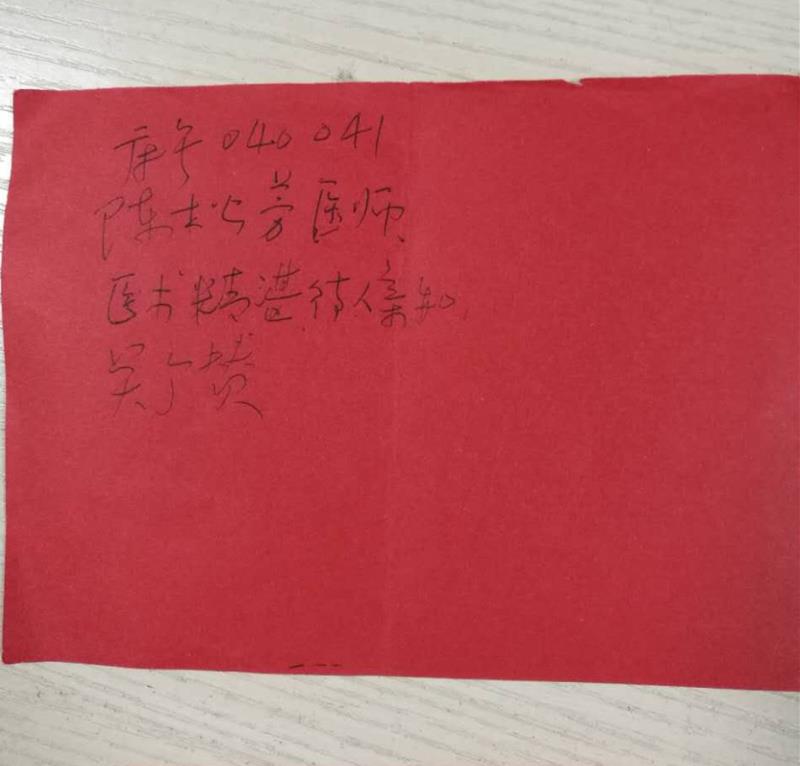 床号040 041
陈松芳医师
医术精湛待人亲和
吴